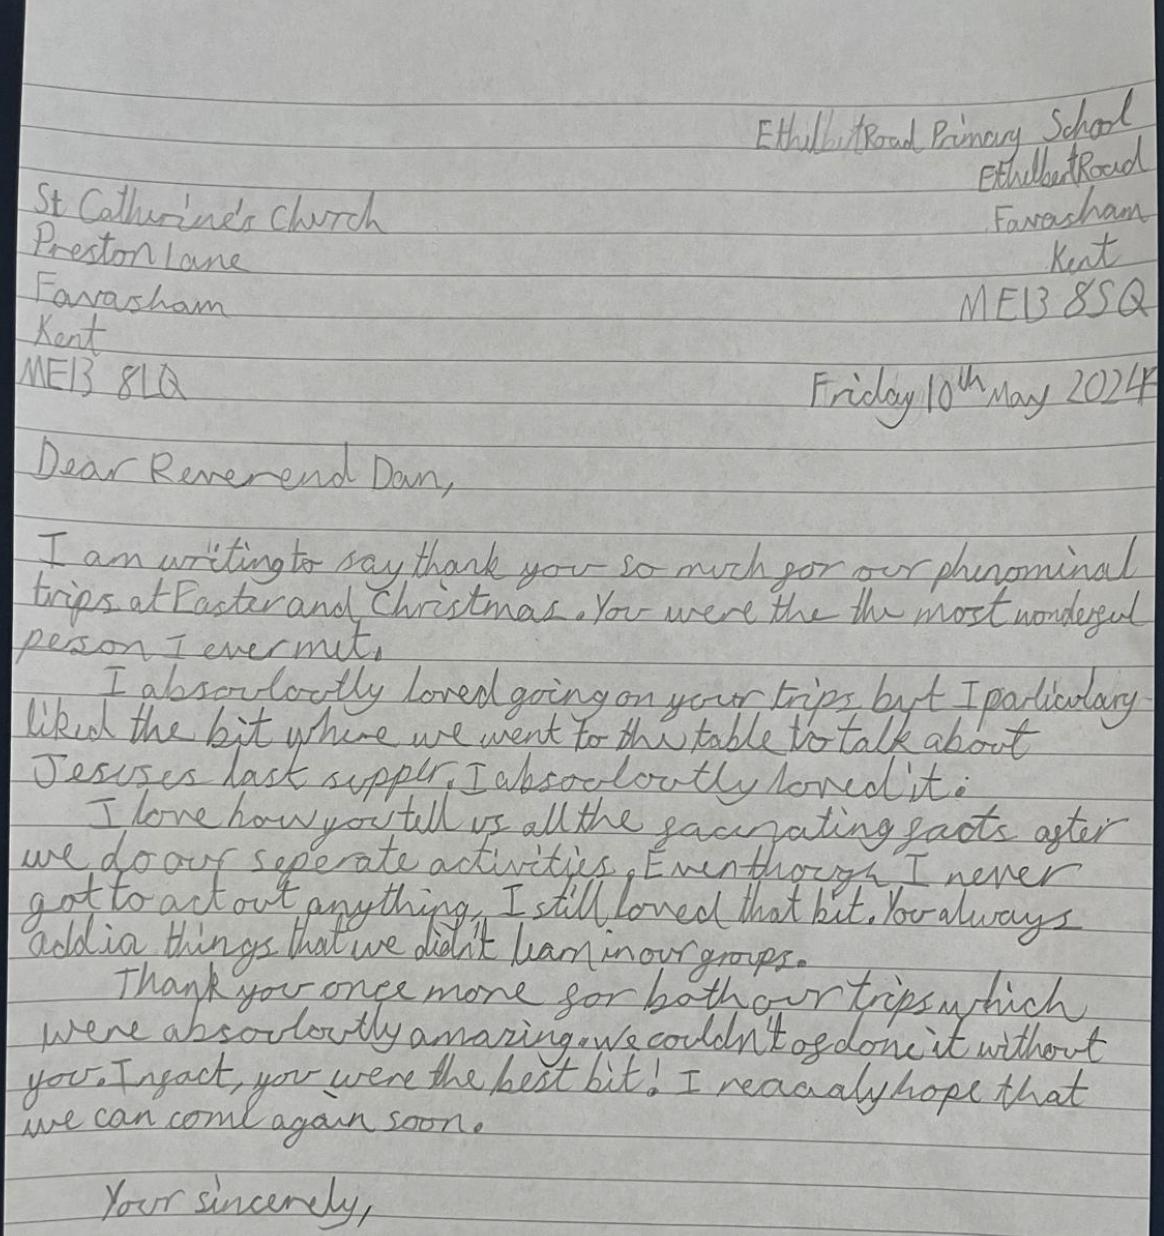 Ethilbirt Road Primary School
Ethelbert Road
St Catherine's Church
Favasham
Preston Lane
Kent
Favasham
ME13 8SQ
Kent
ME13 8LQ
Friday 10th May 2024
Dear Reverend Dan,
I am writing to say thank you so much for our phenominal
trips at Easter and Christmas. You were the the most wonderful
person I ever met.
I absouloutly loved going on your trips but I particulary
liked the bit where we went to the table to talk about
Jesuses last supper. I absouloutly loved it.
I love how you tell us all the facinating facts after
we do our seperate activities. Even though I never
got to act out anything, I still loved that bit. You always
add in things that we didn't learn in our groups.
Thank you once more for both our trips which
were absouloutly amazing. We couldn't of done it without
you. Infact, you were the best bit! I reaaaly hope that
we can come again soon.
Your sincerely,